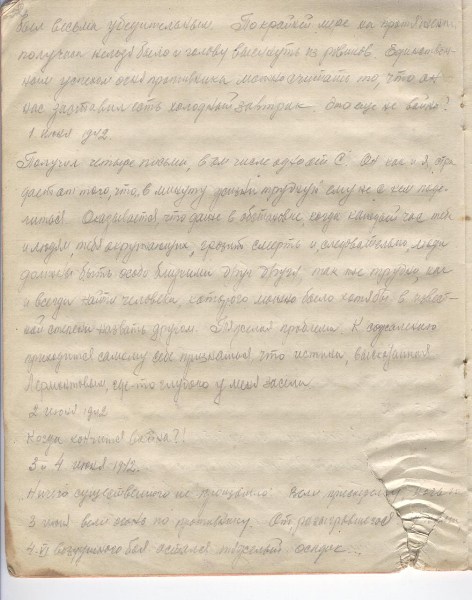 был весьма убедительным. По крайней мере на протяжении
получаса нельзя было и голову высунуть из ровиков. Единствен-
ным успехом огня противника можно считать то, что он
нас заставил есть холодный завтрак. Это ещё не война?
1 июня 1942.
Получил четыре письма, в том числе одно от С. Он как и я, стра-
дает от того, что в минуту трудную ему не с кем поде-
литься. Оказывается, что даже в обстановке, когда каждый час тебе
и людям, тебя окружающим, грозит смерть и, следовательно, люди
должны быть особо близкими друг другу, так же трудно, как
и всегда найти человека, которого можно было хотя бы в извест-
ной степени назвать другом. проблема. К сожалению
приходится самому себе признаться, что истина, высказанная
Лермонтовым, где-то глубоко у меня засела.
2 июня 1942
Когда кончится война?!
3 и 4 июня 1942.
Ничего существенного не произошло. Вели пристрелку,
3 июня вели огонь по противнику. От
4-й воздушного боя остался тяжелый осадок...